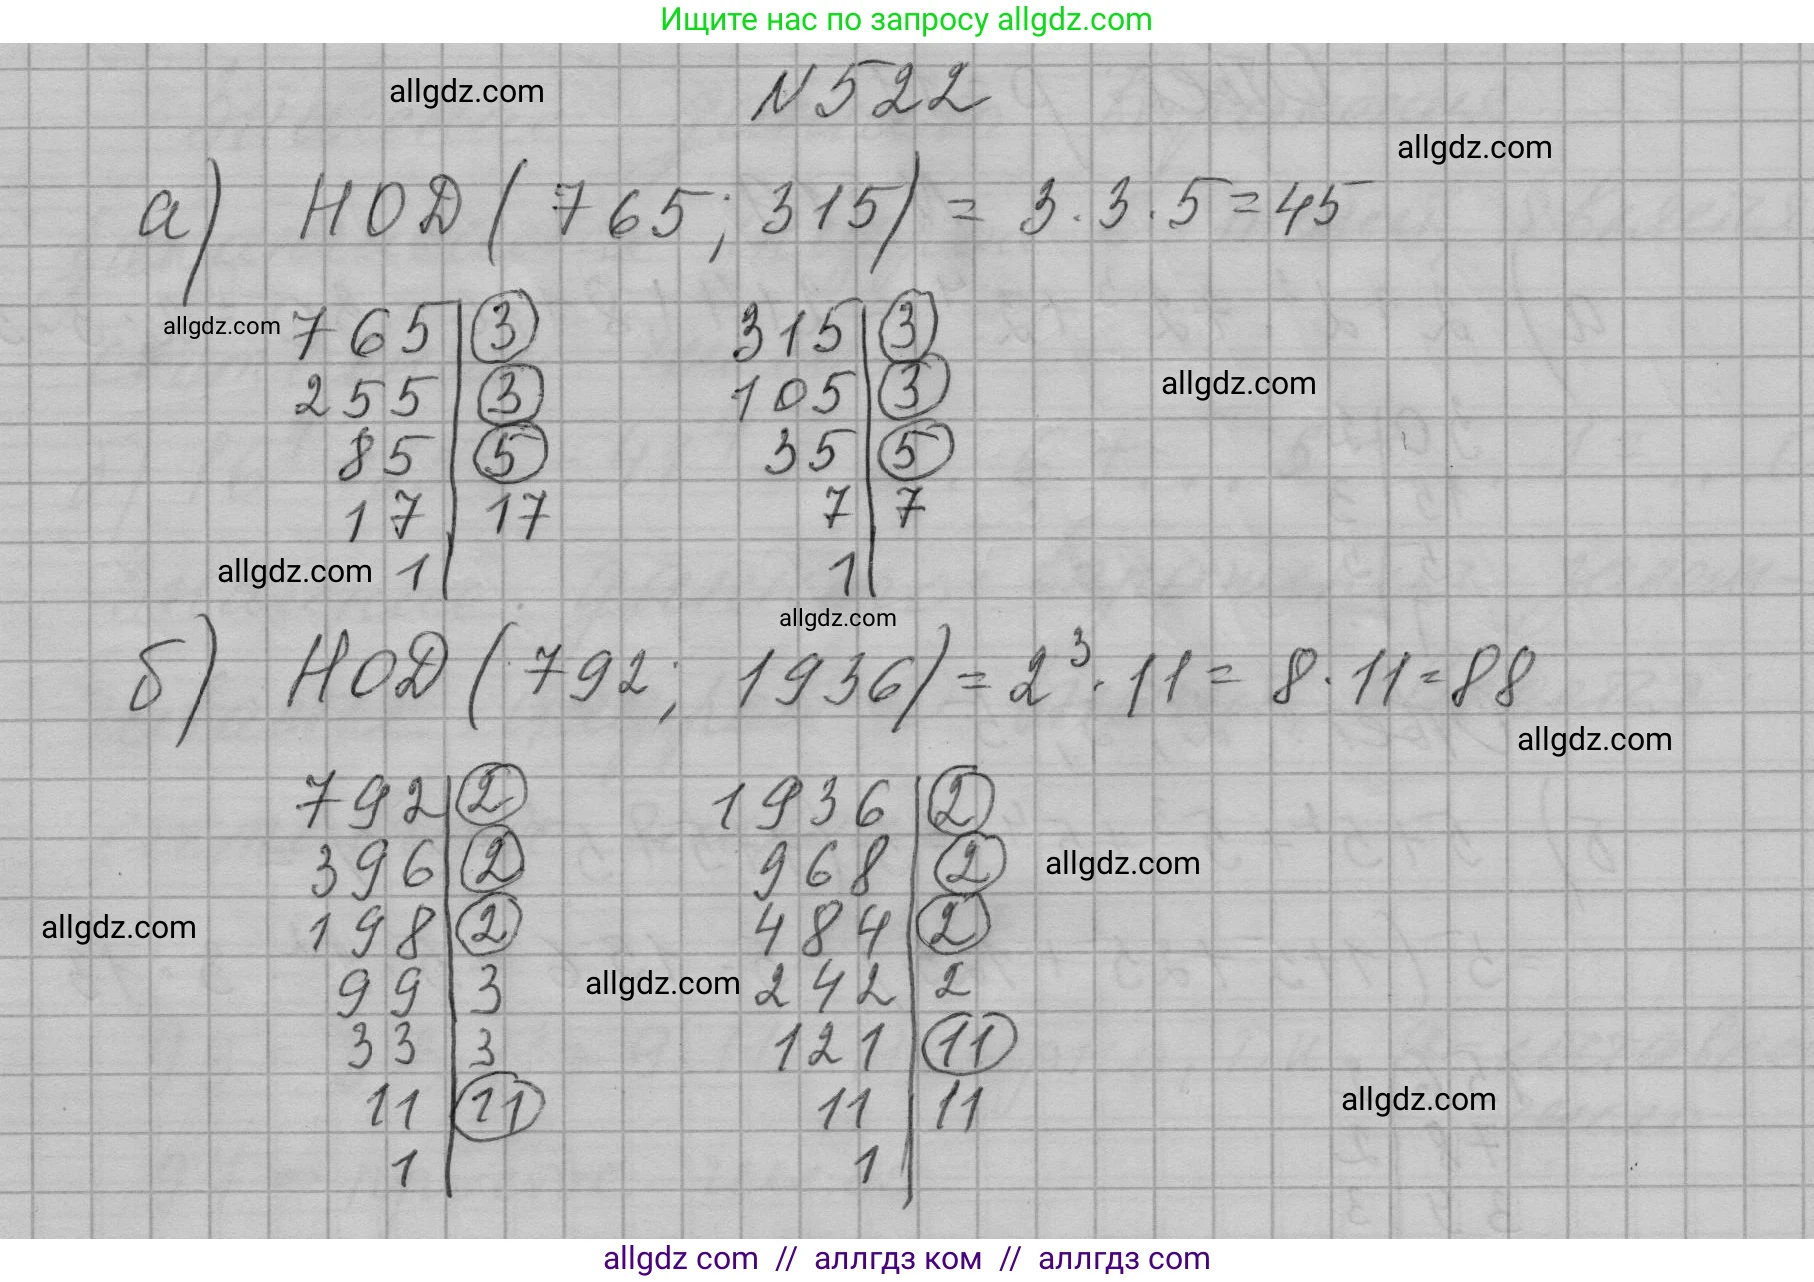 Ищите нас по запросу allgdz.com
allgdz.com
N 522
allgdz.com
а) НОД (765; 315) = 3 · 3 · 5 = 45
allgdz.com
765 | 3 315 | 3
255 | 3 105 | 3
allgdz.com
85 | 5 35 | 5
17 | 17 7 | 7
allgdz.com
1 | 1 |
allgdz.com
б) НОД (792; 1936) = 2³ · 11 = 8 · 11 = 88
allgdz.com
792 | 2 1936 | 2
396 | 2 968 | 2
allgdz.com
allgdz.com
198 | 2 484 | 2
99 | 3 242 | 2
allgdz.com
33 | 3 121 | 11
11 | 11 11 | 11
allgdz.com
1 | 1 |
allgdz com // аллгдз ком // аллгдз com